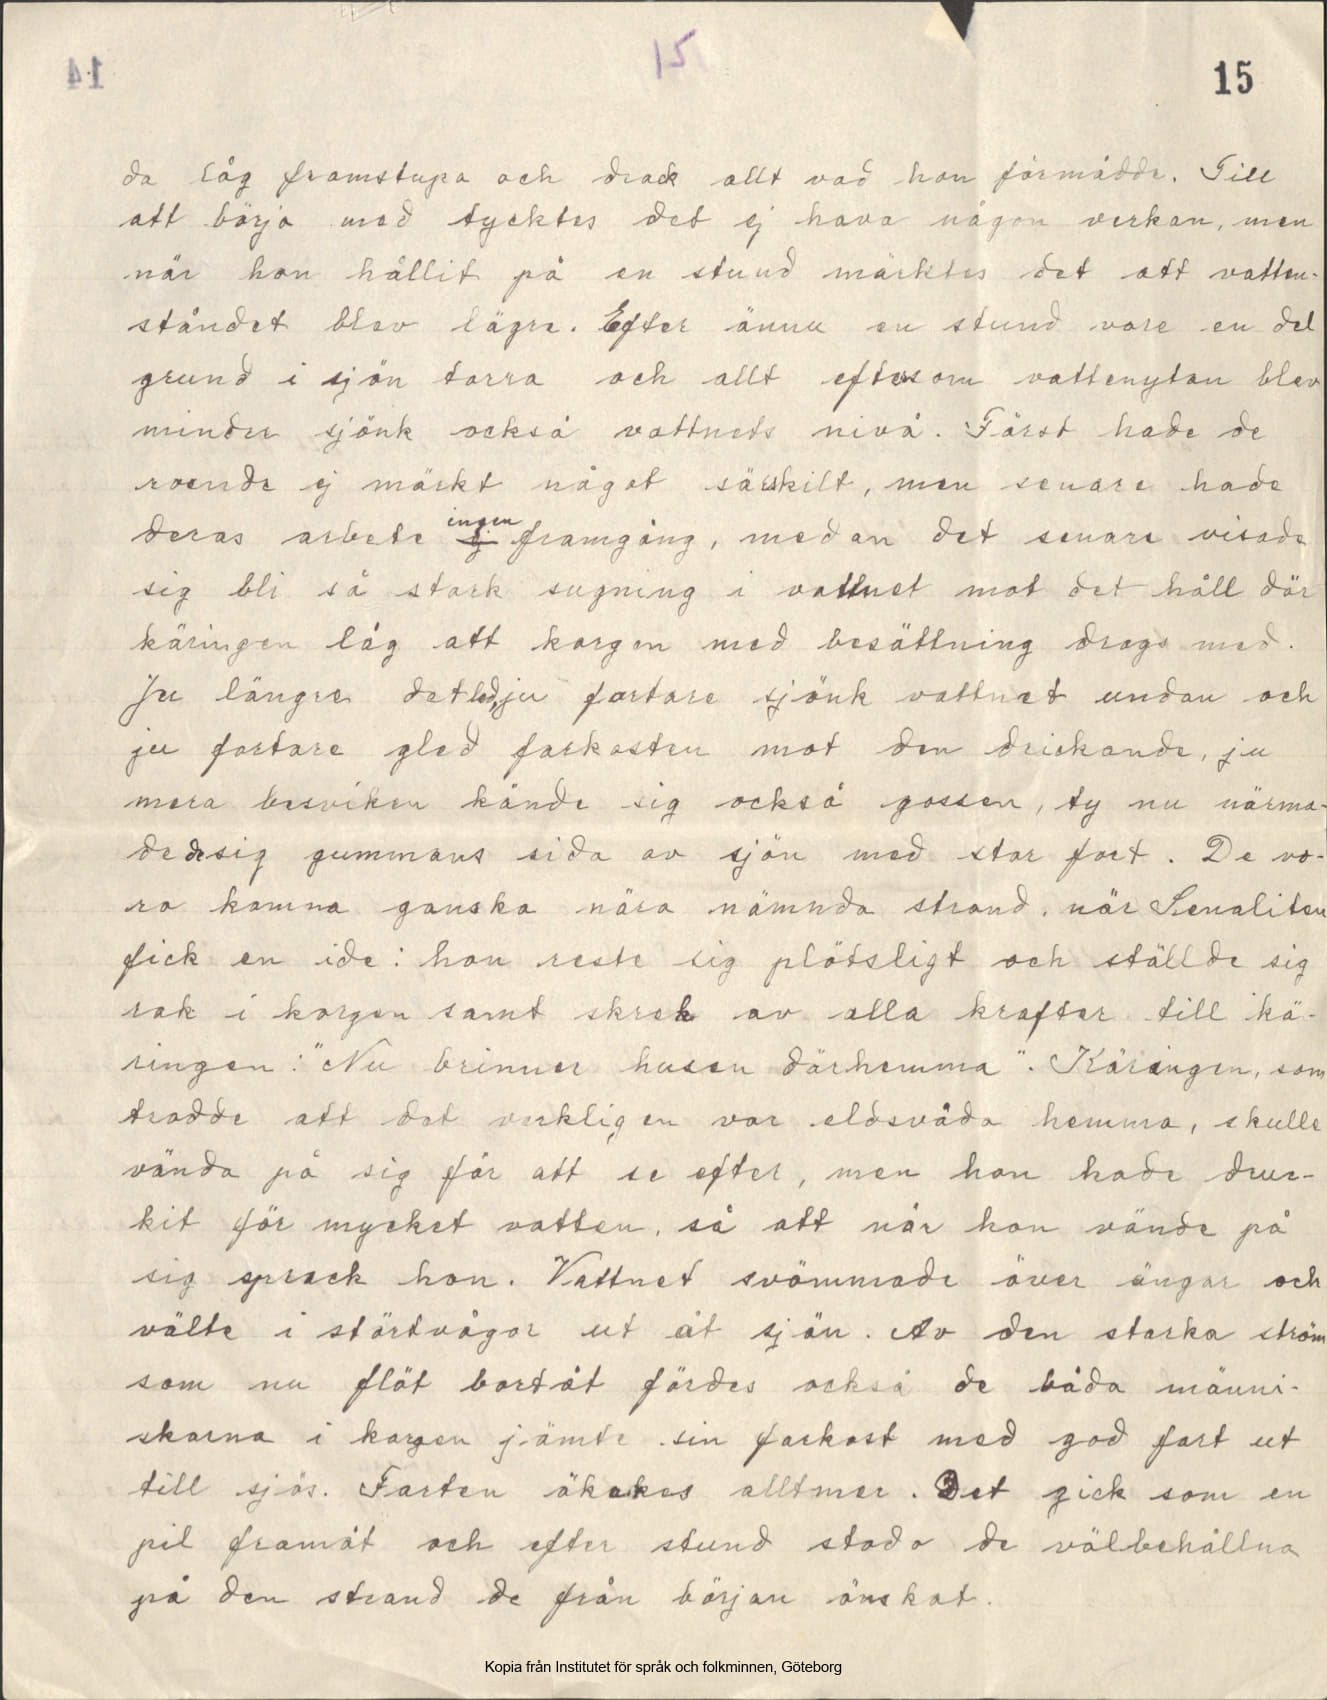 15
15
14
da låg framstupa och drack allt vad hon förmådde. Till
att börja med tycktes det ej hava någon verkan, men
när hon hållit på en stund märktes det att vatten-
ståndet blev lägre. Efter ännu en stund vore en del
grund i sjön torra och allt eftersom vattenytan blev
minder sjönk också vattnets nivå. Först hade de
roende ej märkt något särskilt, men senare hade
deras arbete ingen framgång, medan det senare visade
sig bli så stark sugning i vattnet mot det håll där
käringen låg att korgen med besättning drogs med.
Ju längre det led, ju fortare sjönk vattnet undan och
ju fortare gled farkosten mot den drickande, ju
mera besviken kände sig också gossen, ty nu närma-
de de sig gummans sida av sjön med stor fort. De vo-
ro komna ganska nära nämnda strand, när Senaliten
fick en ide: hon reste sig plötsligt och ställde sig
rak i korgen samt skrek av alla krafter till kä-
ringen: "Nu brinner husen därhemma". Käringen, som
trodde att det verkligen var eldsvåda hemma, skulle
vända på sig för att se efter, men hon hade druc-
kit för mycket vatten, så att når hon vände på
sig sprack hon. Vattnet svömmade över ängar och
välte i störtvågor ut åt sjön. Av den starka ström
som nu flöt bortåt fördes också de båda männi-
skorna i korgen jämte sin farkost med god fart ut
till sjös. Farten ökades alltmer. Det gick som en
pil framåt och efter stund stodo de välbehållna
på den strand de från början önskat.
Kopia från Institutet för språk och folkminnen, Göteborg